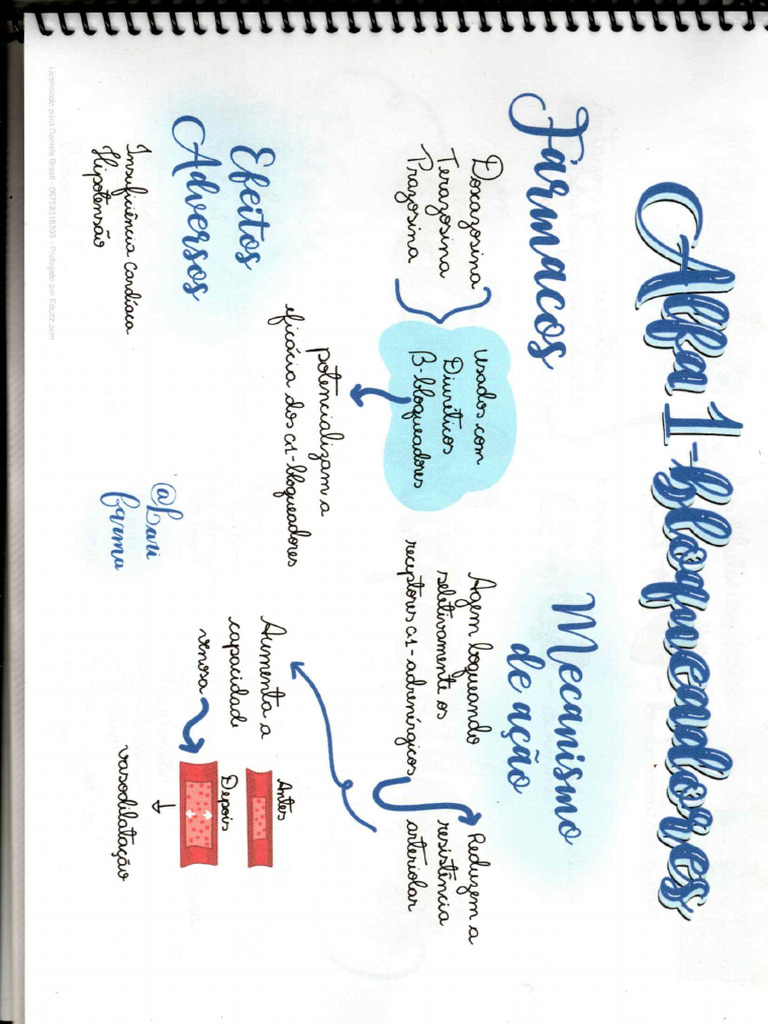 Alfa 1-bloqueadores
Fármacos
Doxazosina
Terazosina
Prazosina
usados com
Diuréticos
B-bloqueadores
potencializam a
eficácia dos α1-bloqueadores
Efeitos
Adversos
Insuficiência Cardíaca
Hipotensão
Mecanismo
de ação
Agem boqueando
seletivamente os
receptores α1-adrenérgicos
Reduzem a
resistência
arteriolar
Aumenta a
capacidade
venosa
Antes
Depois
↓
vasodilatação
@Lari
farma